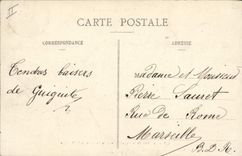 II
CARTE POSTALE
CORRESPONDANCE
ADRESSE
Tendres baisers
de Guiguite
Madame et Monsieur
Pierre Sauret
Rue de Rome
Marseille
B.D.R.